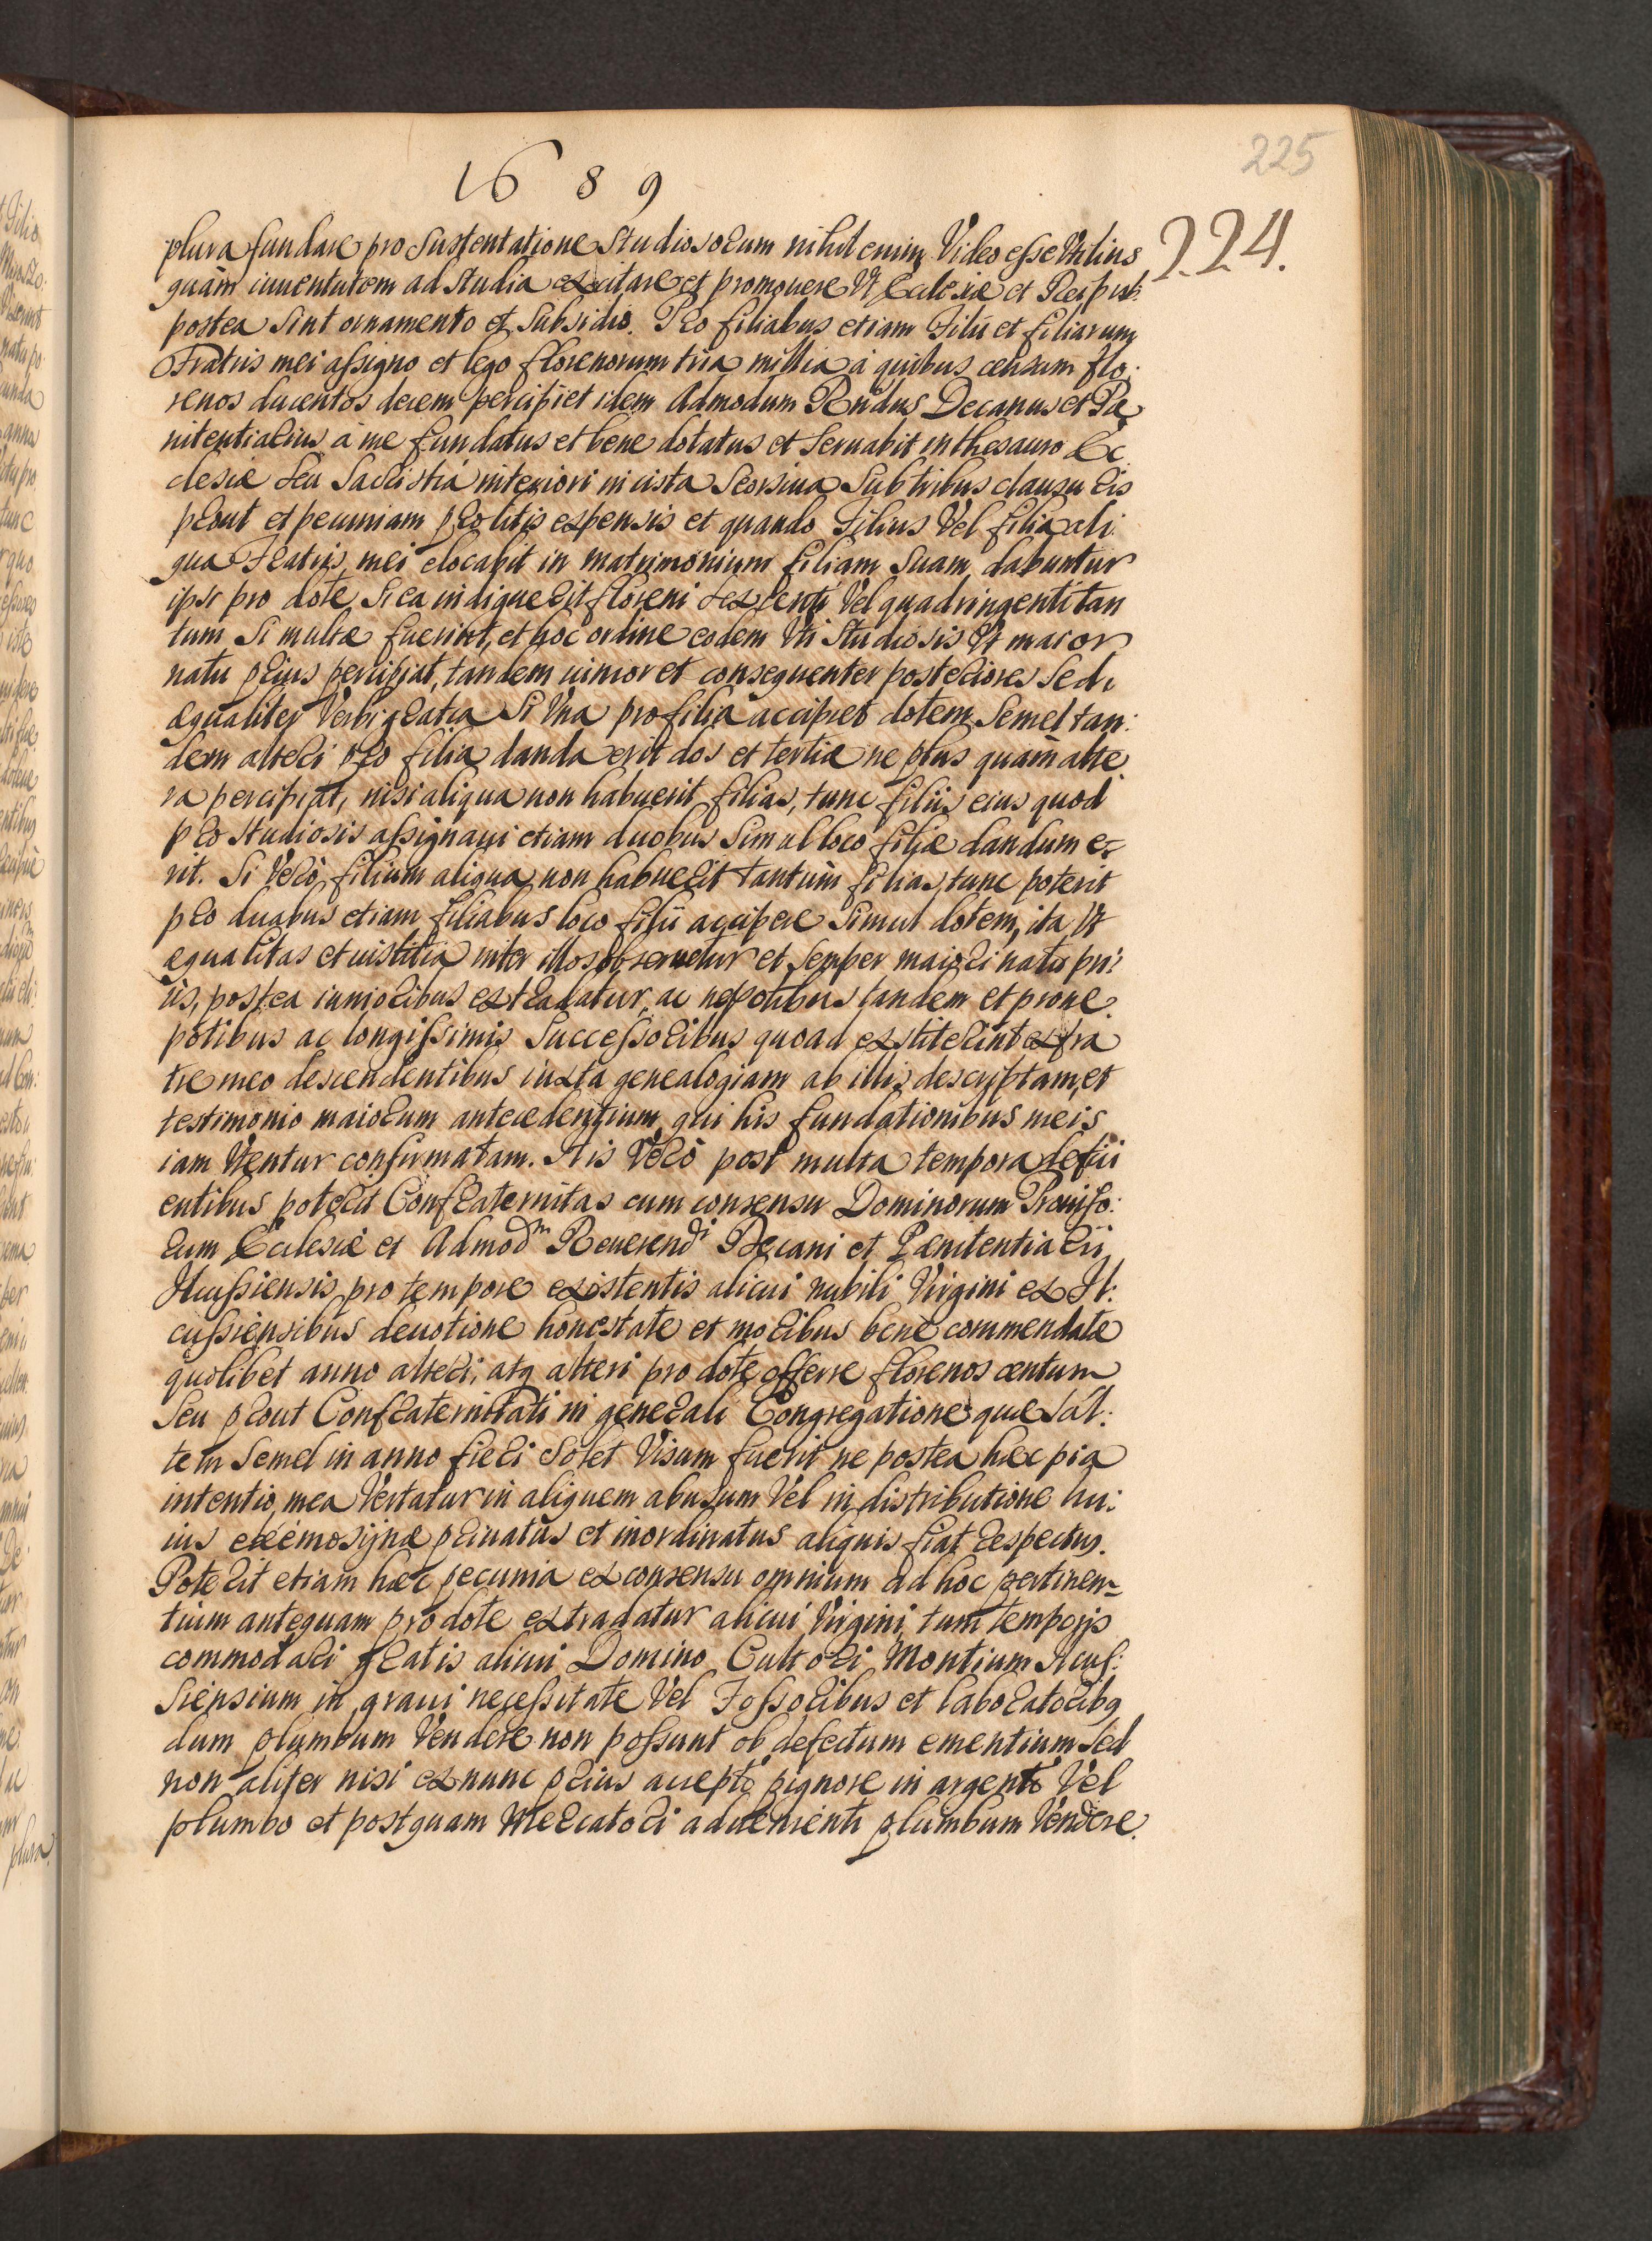 225
1689
224.
plura fundare pro sustentatione Studiosorum nihil enim Video esse Vtilius
quàm iuuentutem ad studia excitare et promouere Vt Ecclesiæ et Reipub:
postea sint ornamento et subsidio. Pro filiabus etiam Filii et filiarum
Fratris mei assigno et lego florenorum tria millia à quibus censum flo:
renos ducentos decem percipiet idem Admodum Rndus Decanus et Pæ
nitentiarius à me fundatus et bene dotatus et seruabit in thesauro Ec
clesiæ seu Sacristiâ interiori in cista Seorsiua Sub tribus clausuris
prout et pecuniam pro litis expensis et quando Filius Vel filia ali:
qua Fratris mei elocabit in matrimonium filiam suam dabuntur
ipsi pro dote si ea indiguerit floreni sexcenti Vel quadringenti tan
tum si multæ fuerint, et hoc ordine eodem Vti Studiosis Vt maior
natu prius percipiat, tandem iunior et consequenter posteriores sed
æqualiter Verbi gratia Si Vna pro filia accipiet dotem semel tan:
dem alteri pro filia danda erit dos et tertiæ ne plus quàm alte
ra percipiat, nisi aliqua non habuerit filias, tunc filiis eius quod
pro studiosis assignaui etiam duobus simul loco filiæ dandum e=
rit. Si Verò filium aliqua non habuerit tantùm filias, tunc poterit
pro duabus etiam filiabus loco filii accipere simul dotem, ita Vt
æqualitas et iustitia inter illos obseruetur et semper maiori natu pri:
ùs, postea iunioribus extradatur, ac nepotibus tandem et prone
potibus ac longissimis Successoribus quoad extiterint ex fra
tre meo descendentibus iuxta genealogiam ab illis descriptam, et
testimonio maiorum antecedentium qui his fundationibus meis
iam Vtentur confirmatam. His Verò post multa tempora defici
entibus poterit Confraternitas cum consensu Dominorum Prouiso:
rum Ecclesiæ et Admodm Reuerendi Decani et Pænitentiarii
Ilcussiensis pro tempore existentis alicui nubili Virgini ex Il:
cussiensibus deuotione honestate et moribus bene commendatæ
quolibet anno alteri, atq alteri pro dote offerre florenos centum
seu prout Confraternitati in generali Congregatione quæ sal:
tem semel in anno fieri solet Visum fuerit ne postea hæc pia
intentio mea Vertatur in aliquem abusum Vel in distributione hu:
ius eleemosijnæ priuatus et inordinatus aliquis fiat respectus.
Poterit etiam hæc pecunia ex consensu omnium ad hoc pertinen=
tium antequam pro dote extradatur alicui Virgini, tum temporis
commodari gratis alicui Domino Cultori Montium Ilcus:
siensium in graui necessitate Vel Fossoribus et laboratoribq
dum plumbum Vendere non possunt ob defectum ementium sed
non aliter nisi ex nunc prius accepto pignore in argento Vel
plumbo et postquam Mercatori aduenienti plumbum Vendere